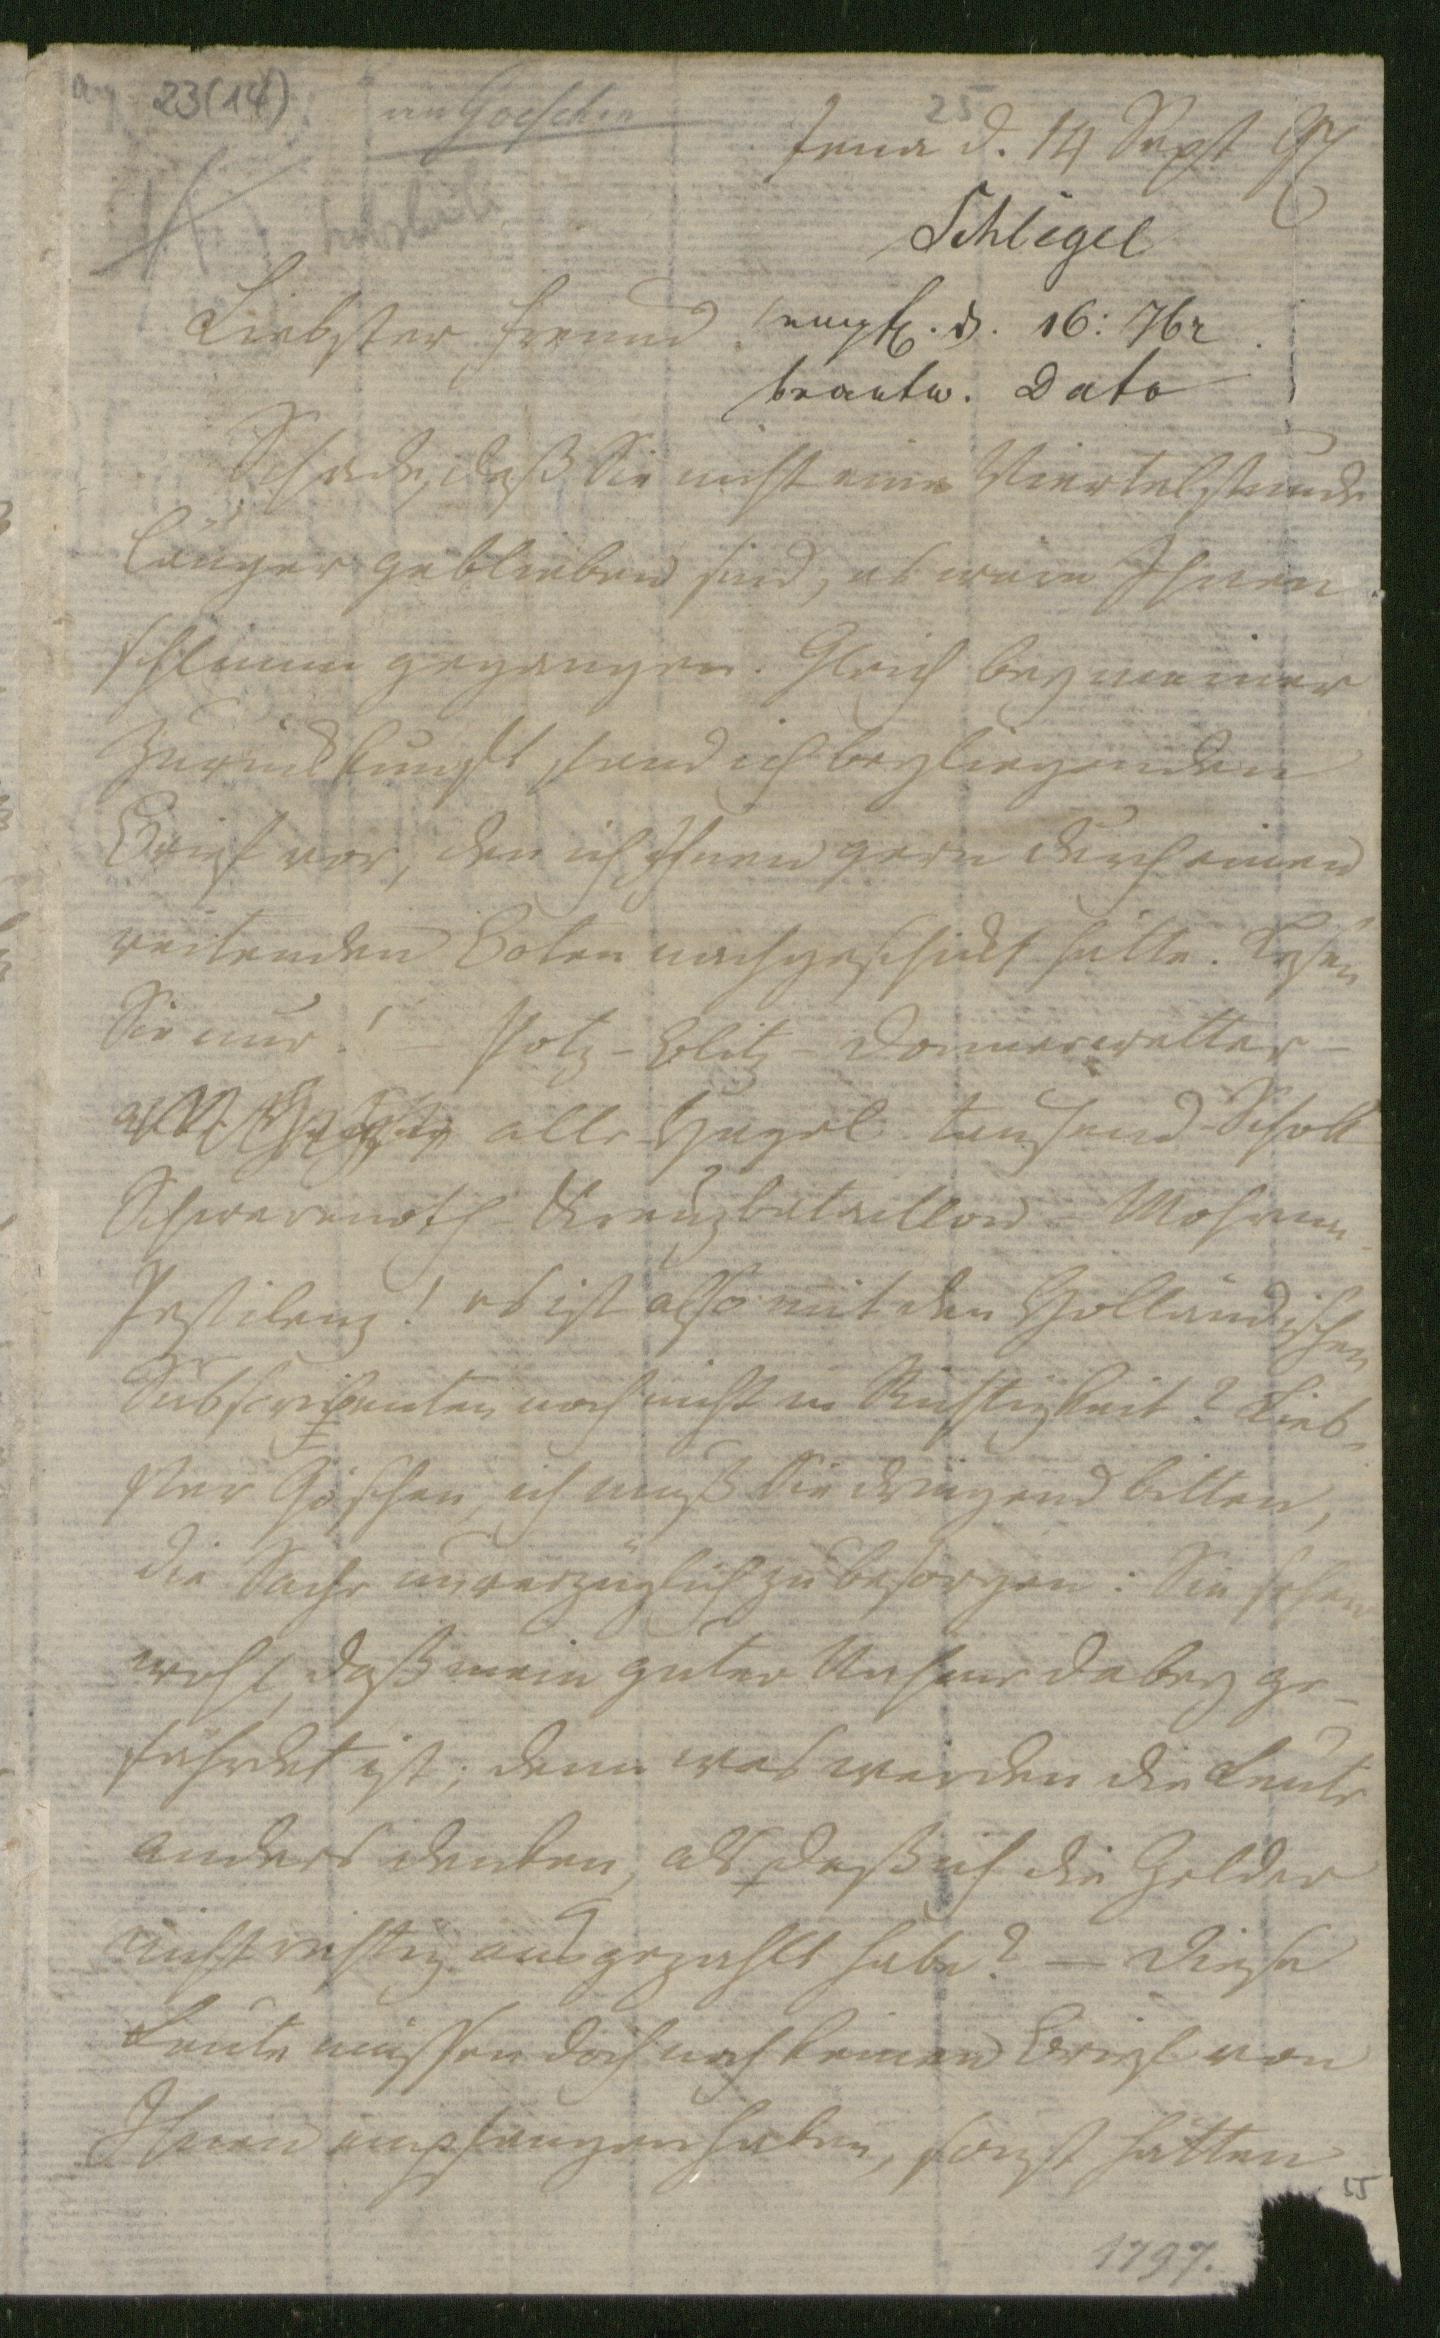 23(14)
an Goeschen
25
Jena d. 14 Sept 97
Schlegel
Liebster Freund
empf. d. 16: 7br
beantw. Dato
Schade, daß Sie nicht eine Viertelstunde
länger geblieben sind, es wäre Ihnen
schlimm gegangen. Gleich bey meiner
Zurückkunft fand ich beyliegenden
Brief vor, den ich Ihnen gern durch einen
reitenden Boten nachgeschickt hätte. Lesen
Sie nur! – Potz-Blitz-Donnerwetter-
alle Hagel tausend-Schock
Schwerenoth-Kreuzbataillon-Mohren-
Pestilenz! es ist also mit den Holländischen
Subscribenten noch nicht in Richtigkeit? Lieb-
ster Göschen, ich muß Sie dringend bitten,
die Sache unverzüglich zu besorgen: Sie sehen
wohl, daß mein guter Nahme dabey ge-
fährdet ist; denn was werden die Leute
anders denken, als daß ich die Gelder
nicht richtig ausgezahlt habe? — Diese
Leute müssen doch noch keinen Brief von
Ihnen empfangen haben, sonst hätten
55
1797.